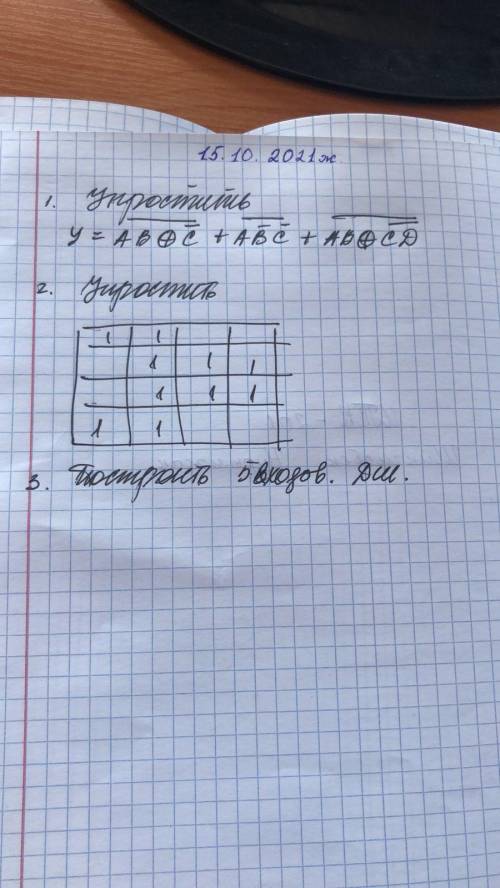 15.10.2021ж
1. Упростить
y = A \overline{B ⊕ \overline{C}} + A \overline{\overline{B} \overline{C}} + \overline{AB ⊕ \overline{CD}}
2. Упростить
1 1
1 1 1
1 1 1
1 1
3. Построить 5 входов. Дш.